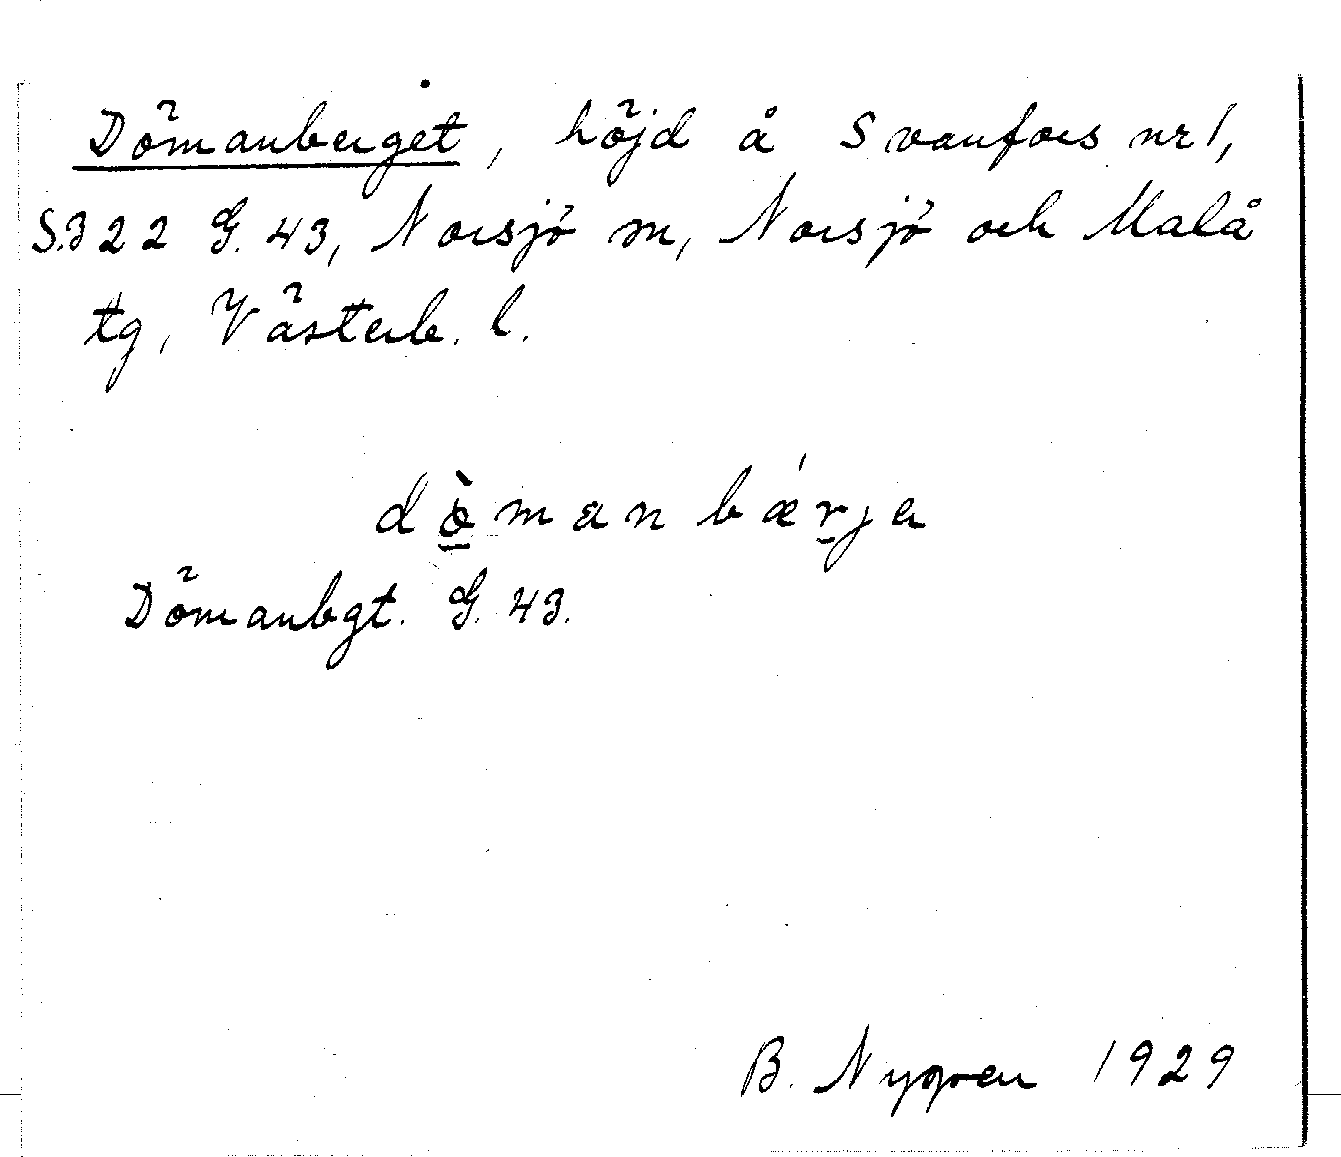 Dömanberget, höjd å Svanfors nr 1,
S.322 G. 43, Norsjö sn, Norsjö och Malå
tg, Västerb. l.
dò̱man bǽr̠ja
Dömanbgt. G. 43.
B. Nygren 1929